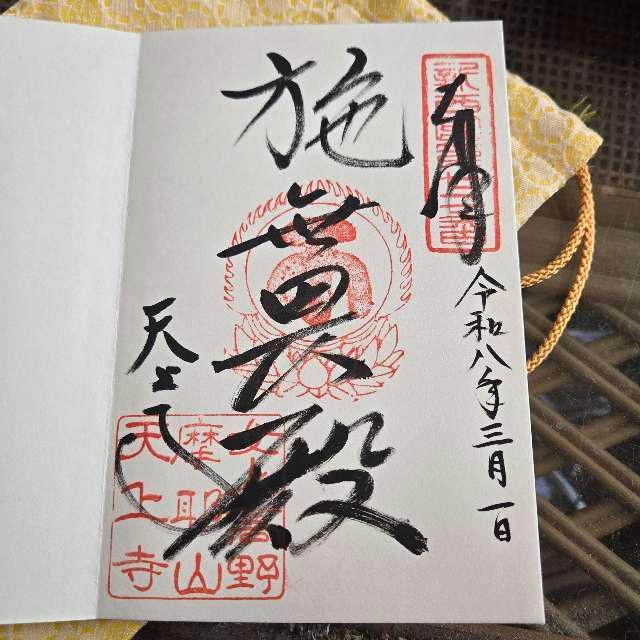 奉拝
令和八年三月一日
施無畏殿
天上寺
女人高野
摩耶山
天上寺